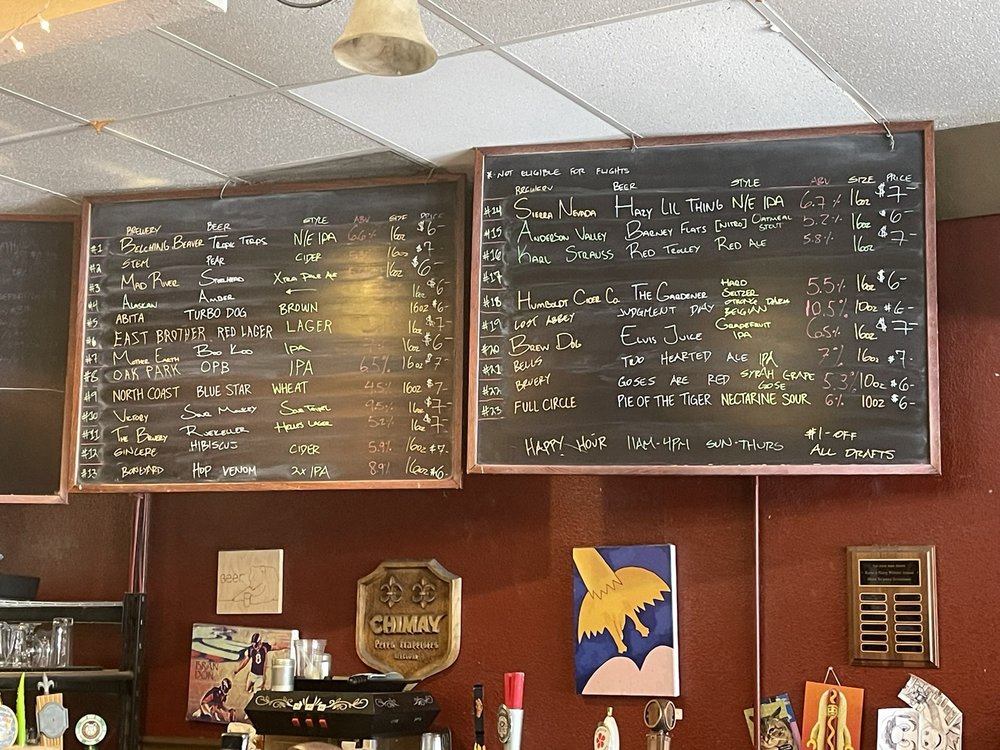 BREWERY BEER STYLE ABV SIZE PRICE
#1 BELCHING BEAVER TROPIC TERPS N/E IPA 6.6% 16oz $6-
#2 STEM PEAR CIDER 16oz $7
#3 MAD RIVER STEELHEAD XTRA PALE ALE 16oz $6-
#4 ALASKAN AMBER ← 16oz $6-
#5 ABITA TURBO DOG BROWN 16oz $6-
EAST BROTHER RED LAGER LAGER 16oz $7-
#7 MOTHER EARTH BOO KOO IPA 16oz $6-
#8 OAK PARK OPB IPA 6.5% 16oz $7-
#9 NORTH COAST BLUE STAR WHEAT 4.5% 16oz $7-
#10 VICTORY SOUR MONKEY SOUR TRIPEL 9.5% 16oz $7-
#11 THE BRUERY RUEKELLER HELLES LAGER 5.2% 16oz $7-
#12 SINCERE HIBISCUS CIDER 5.9% 16oz $7-
#13 BONEYARD HOP VENOM 2x IPA 8.9% 16oz $6-
*-NOT ELIGIBLE FOR FLIGHTS
BREWERY BEER STYLE ABV SIZE PRICE
#14 SIERRA NEVADA HAZY LIL THING N/E IPA 6.7% 16oz $7-
#15 ANDERSON VALLEY BARNEY FLATS [NITRO] OATMEAL STOUT 5.2% 16oz $6-
#16 KARL STRAUSS RED TROLLEY RED ALE 5.8% 16oz $7-
#17
#18 HUMBOLDT CIDER CO. THE GARDENER HARD SELTZER 5.5% 16oz $6-
#19 LOST ABBEY JUDGMENT DAY STRONG DARK BELGIAN 10.5% 10oz $6-
#20 BREW DOG ELVIS JUICE GRAPEFRUIT IPA 6.5% 16oz $7-
#21 BELLS TWO HEARTED ALE IPA 7% 16oz $7-
#22 BRUERY GOSES ARE RED SYRAH GRAPE GOSE 5.3% 10oz $6-
#23 FULL CIRCLE PIE OF THE TIGER NECTARINE SOUR 6% 10oz $6-
HAPPY HOUR 11AM-4PM SUN-THURS $1-OFF ALL DRAFTS
BEER
CHIMAY
PERES TRAPPISTES
BRAN
DON
8